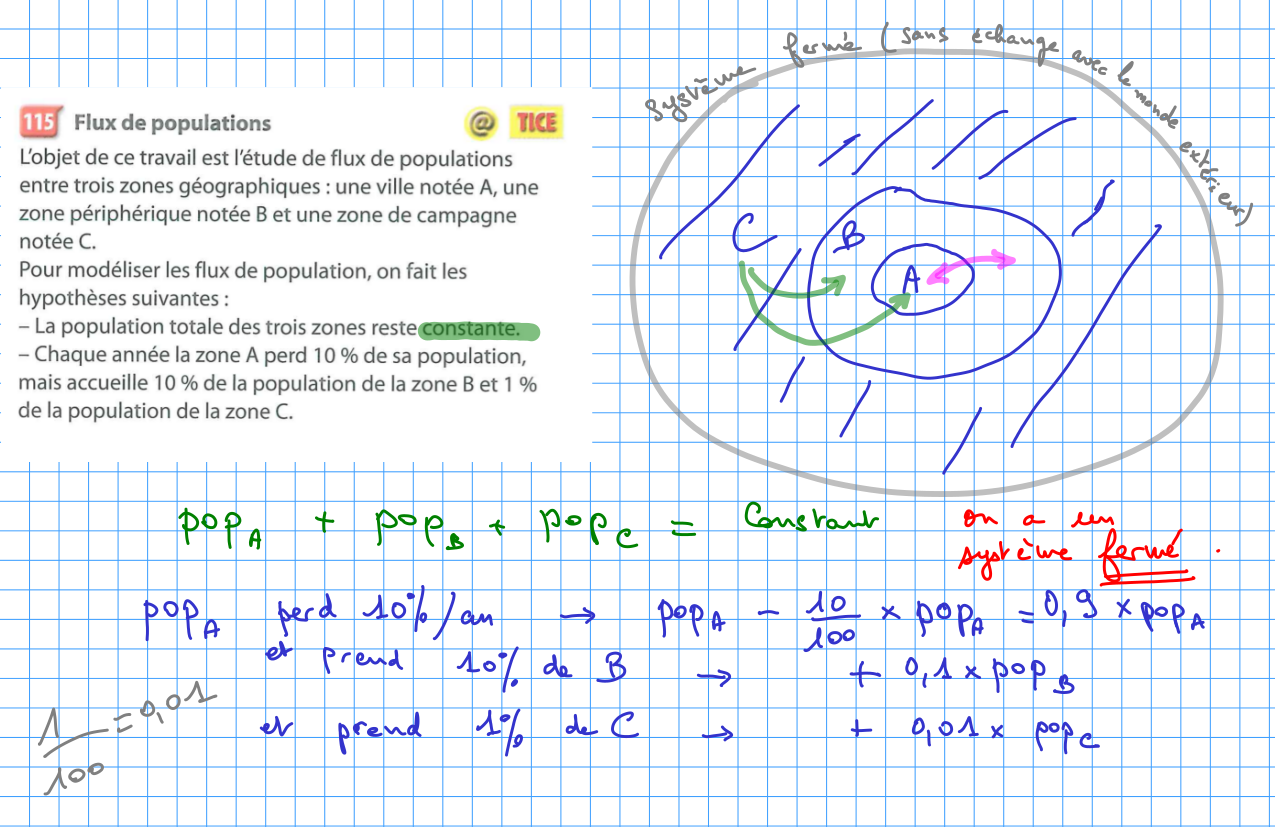 115 Flux de populations @ TICE
L'objet de ce travail est l'étude de flux de populations
entre trois zones géographiques : une ville notée A, une
zone périphérique notée B et une zone de campagne
notée C.
Pour modéliser les flux de population, on fait les
hypothèses suivantes :
– La population totale des trois zones reste constante.
– Chaque année la zone A perd 10 % de sa population,
mais accueille 10 % de la population de la zone B et 1 %
de la population de la zone C.
système fermé (sans échange avec le monde extérieur)
C
B
A
pop_A + pop_B + pop_C = Constant
on a un
système fermé.
pop_A perd 10%/an → pop_A - 10/100 × pop_A = 0,9 × pop_A
et prend 10% de B → + 0,1 × pop_B
et prend 1% de C → + 0,01 × pop_C
1/100 = 0,01